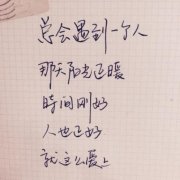 总会遇到一个人
那天阳光正暖
时间刚好
人也正好
就这么爱上